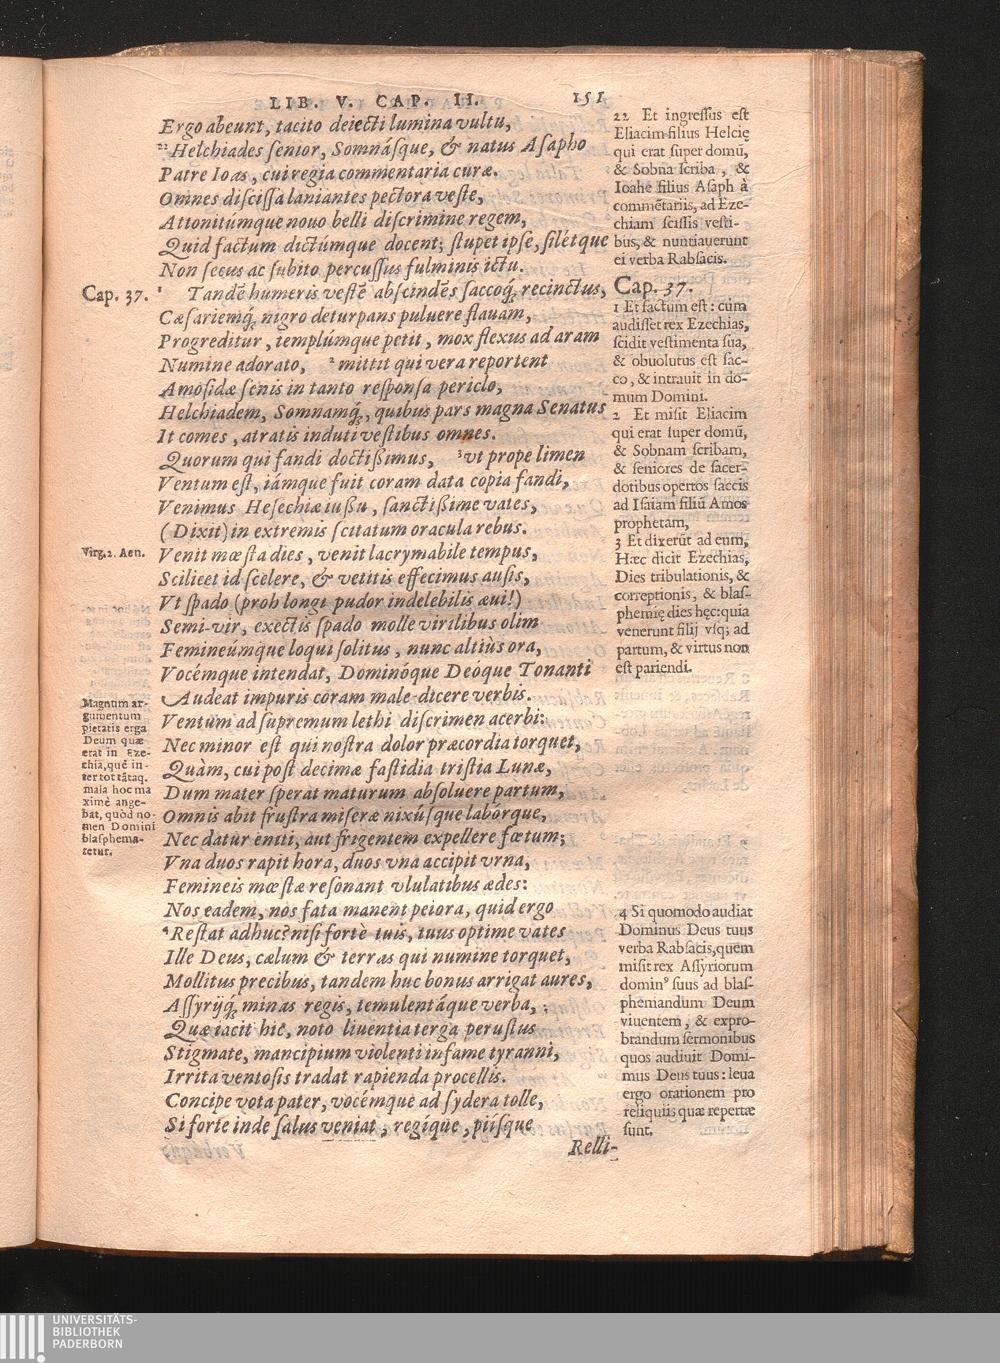 LIB. V. CAP. II. 151
Ergo abeunt, tacito deiecti lumina vultu,
²²Helchiades ſenior, Somnáſque, & natus Aſapho
Patre Ioas, cui regia commentaria curæ.
Omnes diſciſſa laniantes pectora veſte,
Attonitúmque nouo belli diſcrimine regem,
Quid factum dictúmque docent; ſtupet ipſe, ſilétque
Non ſecus ac ſubito percuſſus fulminis ictu.
Cap. 37.
¹ Tandē humeris veſtē abſcindēs ſaccoq́; recinctus,
Cæſariemq́; nigro deturpans puluere flauam,
Progreditur, templúmque petit, mox flexus ad aram
Numine adorato, ²mittit qui vera reportent
Amoſidæ ſenis in tanto reſponſa periclo,
Helchiadem, Somnamq́;, quibus pars magna Senatus
It comes, atratis induti veſtibus omnes.
Quorum qui fandi doctißimus, ³vt prope limen
Ventum eſt, iámque fuit coram data copia fandi,
Venimus Heſechiæ iußu, ſanctißime vates,
(Dixit) in extremis ſcitatum oracula rebus.
Virg. 2. Aen.
Venit mœſta dies, venit lacrymabile tempus,
Scilicet id ſcelere, & vetitis effecimus auſis,
Vt ſpado (proh longi pudor indelebilis æui!)
Semi-vir, exectis ſpado molle virilibus olim
Femineúmque loqui ſolitus, nunc altiùs ora,
Vocémque intendat, Dominóque Deóque Tonanti
Audeat impuris coram male-dicere verbis.
Magnum ar-
gumentum
pietatis erga
Deum quæ
erat in Eze-
chia, quē in-
ter tot tātaq.
mala hoc ma
ximè ange-
bat, quòd no-
men Domini
blaſphema-
retur.
Ventum ad ſupremum lethi diſcrimen acerbi:
Nec minor eſt qui noſtra dolor præcordia torquet,
Quàm, cui poſt decimæ faſtidia triſtia Lunæ,
Dum mater ſperat maturum abſoluere partum,
Omnis abit fruſtra miſeræ nixúſque labórque,
Nec datur eniti, aut frigentem expellere fœtum;
Vna duos rapit hora, duos vna accipit vrna,
Femineis mœſtæ reſonant vlulatibus ædes:
Nos eadem, nos fata manent peiora, quid ergo
⁴Reſtat adhuc? niſi fortè tuis, tuus optime vates
Ille Deus, cælum & terras qui numine torquet,
Mollitus precibus, tandem huc bonus arrigat aures,
Aſſyrijq́; minas regis, temulentáque verba,
Quæ iacit hic, noto liuentia terga peruſtus
Stigmate, mancipium violenti infame tyranni,
Irrita ventoſis tradat rapienda procellis.
Concipe vota pater, vocémque ad ſydera tolle,
Si forte inde ſalus veniat, regíque, piíſque
Relli-
22 Et ingreſſus eſt
Eliacim filius Helcię
qui erat ſuper domū,
& Sobna ſcriba, &
Ioahe filius Aſaph à
commētariis, ad Eze-
chiam ſciſſis veſti-
bus, & nuntiauerunt
ei verba Rabſacis.
Cap. 37.
1 Et factum eſt: cùm
audiſſet rex Ezechias,
ſcidit veſtimenta ſua,
& obuolutus eſt ſac-
co, & intrauit in do-
mum Domini.
2 Et miſit Eliacim
qui erat ſuper domū,
& Sobnam ſcribam,
& ſeniores de ſacer-
dotibus opertos ſaccis
ad Iſaiam filiū Amos
prophetam,
3 Et dixerūt ad eum,
Hæc dicit Ezechias,
Dies tribulationis, &
correptionis, & blaſ-
phemię dies hęc: quia
venerunt filij vſq; ad
partum, & virtus non
eſt pariendi.
4 Si quomodo audiat
Dominus Deus tuus
verba Rabſacis, quem
miſit rex Aſſyriorum
dominꝰ ſuus ad blaſ-
phemandum Deum
viuentem, & expro-
brandum ſermonibus
quos audiuit Domi-
mus Deus tuus: leua
ergo orationem pro
reliquiis quæ repertæ
ſunt.
UNIVERSITÄTS-
BIBLIOTHEK
PADERBORN